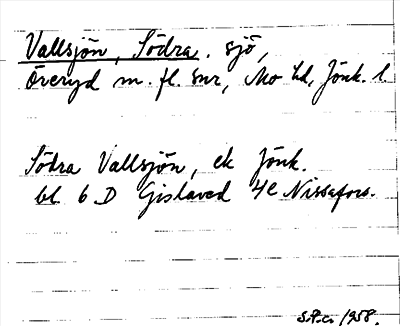 Vallsjön, Södra. sjö,
Överyd m. fl. snr, Mo hd, Jönk. l.
Södra Vallsjön, ek Jönk.
bl 6 D Gislaved 4e Nissafors.
1958.